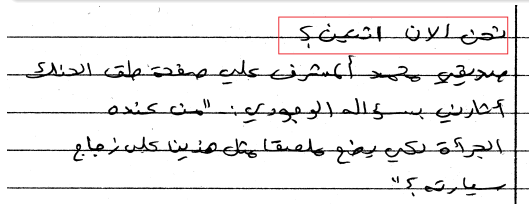 نحن الان اتنين؟
صديقي محمد أ لمشرف علي صفحة طق الحنك
أثارني بسؤاله الوجودي: "من عنده
الجرأة لكي يضع ملصقا مثل هذينا على زجاج
سيارته؟"